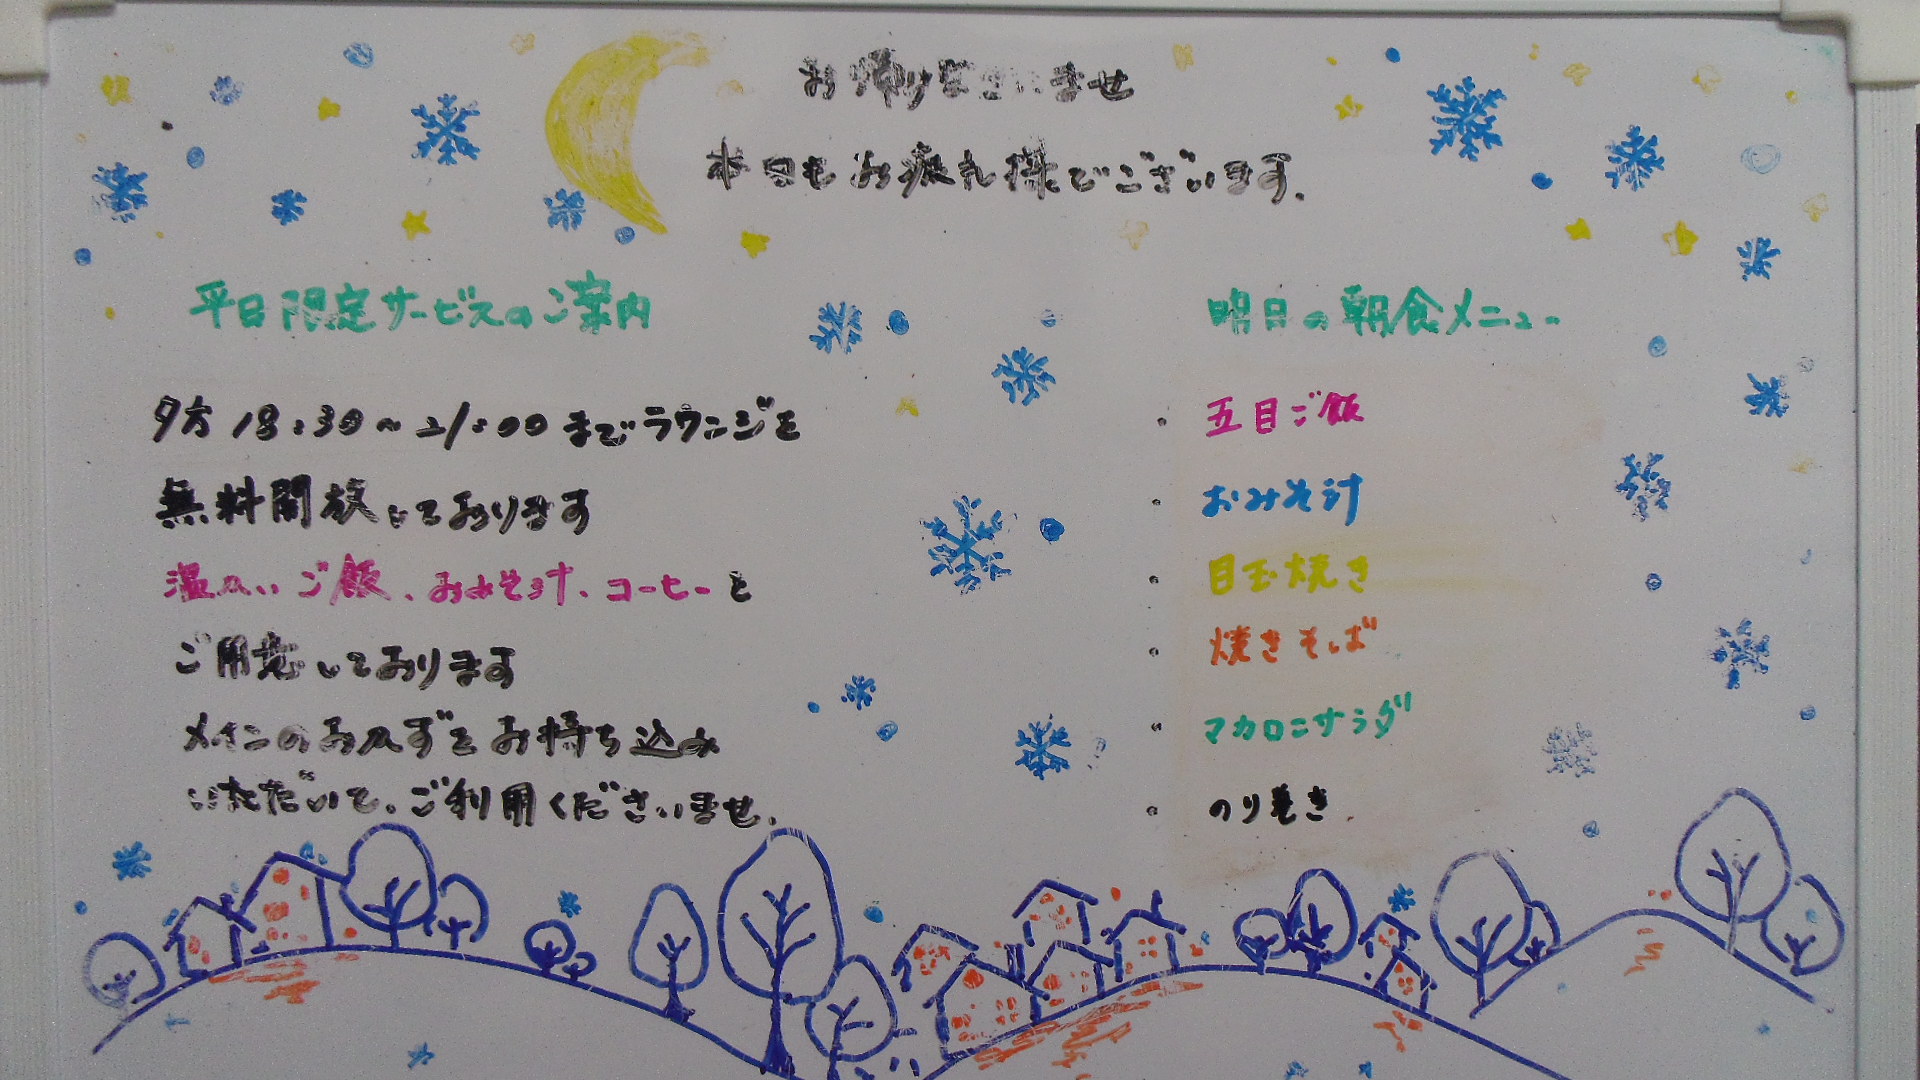 お帰りなさいませ
本日もお疲れ様でございます。
平日限定サービスのご案内
夕方18:30~21:00までラウンジを
無料開放しております
温かいご飯、おみそ汁、コーヒーと
ご用意しております
メインのおかずをお持ち込み
いただいて、ご利用くださいませ。
明日の朝食メニュー
・五目ご飯
・おみそ汁
・目玉焼き
・焼きそば
・マカロニサラダ
・のり巻き